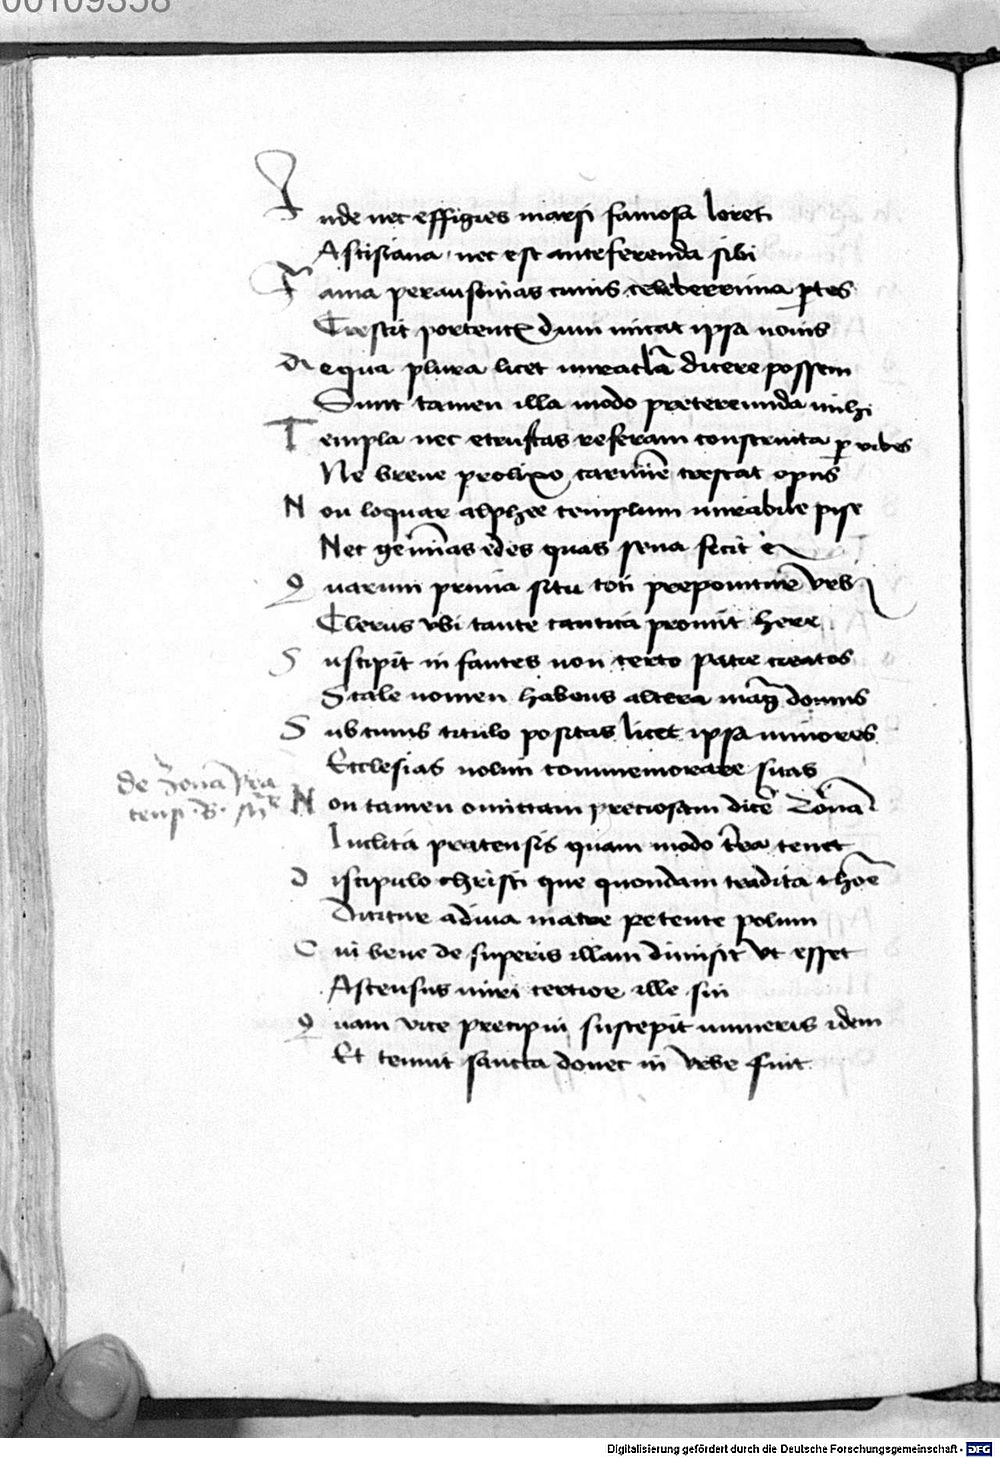 00109358
Inde nec effigies marsi famosa loreti
Assisiana nec est anteferenda sibi
Fama per ausonias cuius celeberrima ptes
Crescit dum micat ipsa nouis
De qua plura licet miracła dicere possem
Sunt tamen illa modo pretereunda mihi
Templa nec etruscas referam constructa p vrbes
Ne breue prolixo carmīe crescat opus
Non loquar alphee templum mirabile pise
Nec gemīas edes quas sena fecit
Quarum prima situ toti preponitur vrbi
Clerus vbi tante cantica promit here
Suscipit infantes non certo patre creatos
Scale nomen habens altera mag domus
Sub cuius titulo positas licet ipsa minores
Ecclesias nolim commemorare suas
de zona Pra
tensi .b.
Non tamen omittam preciosam dicē Zonā
Inclita pratensis quam modo terra tenet
Discipulo christi que quondam tradita thoē
Dicitur a diua matre petente polum
Cui bene de superis illam dimisit vt esset
Ascensus miri certior ille sui
Quam vice precipui suscepit muneris idem
Et tenuit sancta donec in vrbe fuit
Digitalisierung gefördert durch die Deutsche Forschungsgemeinschaft - DFG